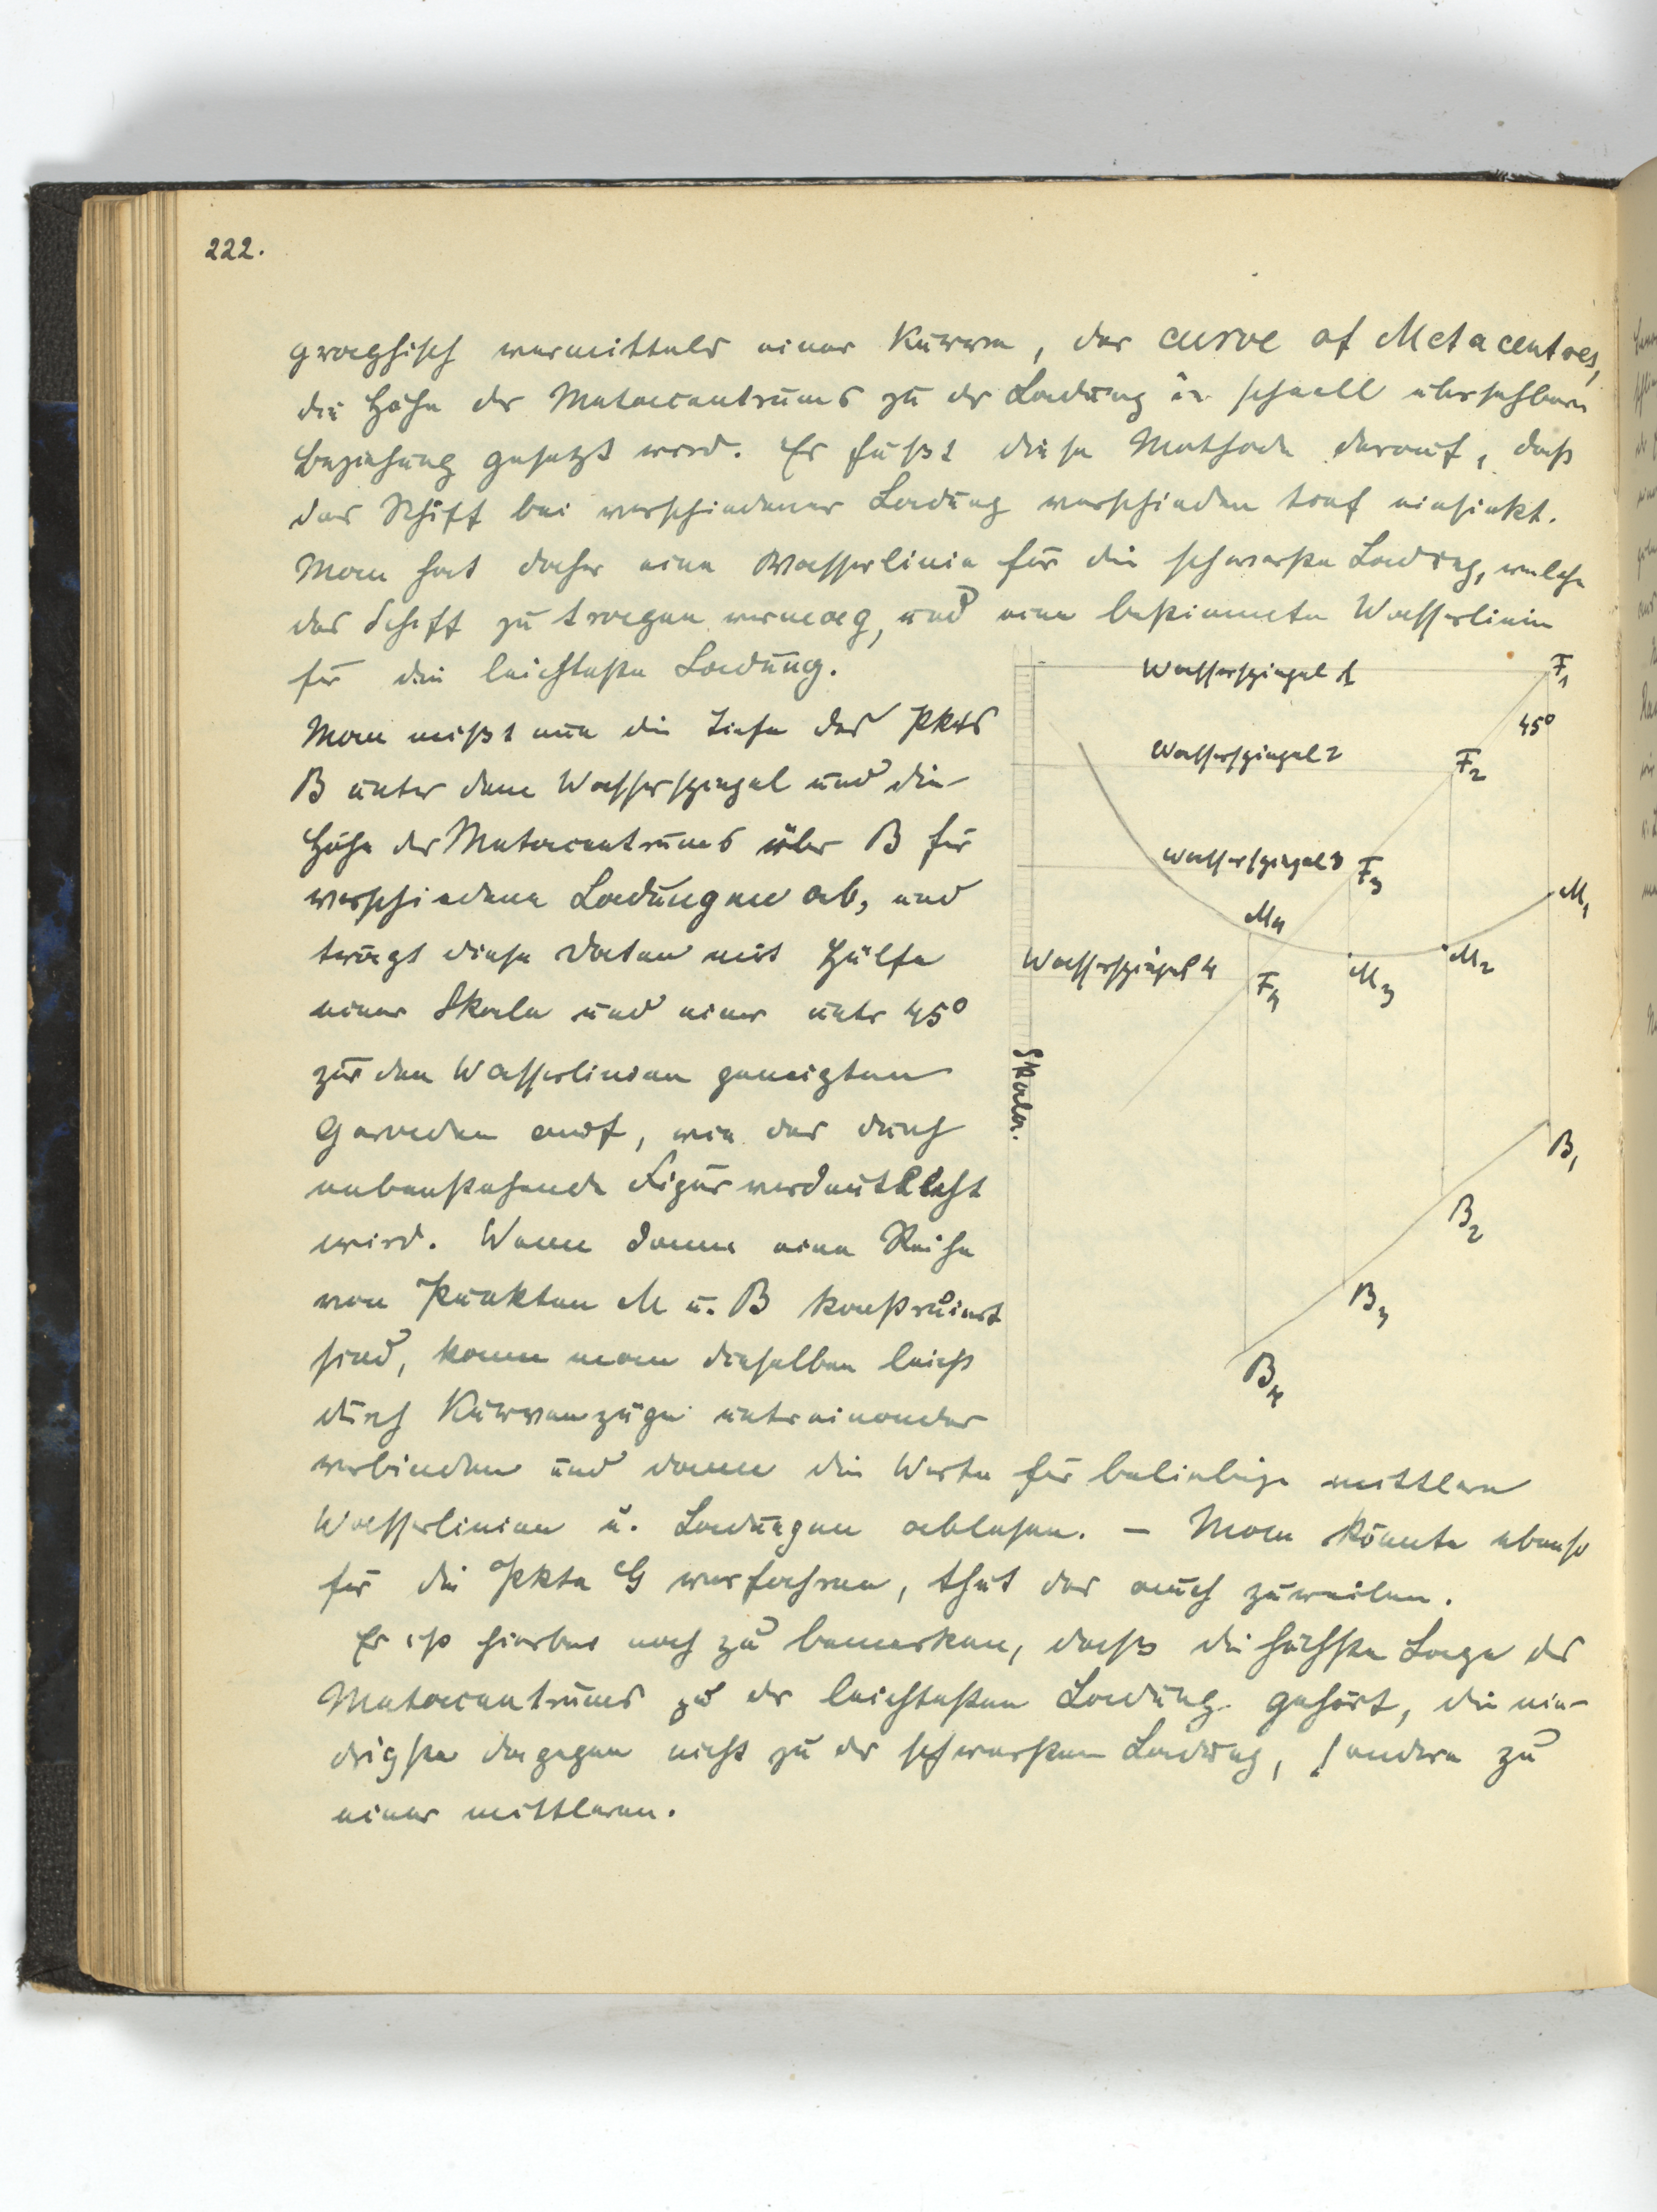 222.
graphisch vermittels einer Kurve, der curve of Metacentres,
die Höhe des Metacentrums zu der Ladung in schnell übersehbare
Beziehung gesetzt wird. Es fußt diese Methode darauf, daß
das Schiff bei verschiedener Ladung verschieden tief einsinkt.
Man hat daher eine Wasserlinie für die schwerste Ladung, welche
das Schiff zu tragen vermag, und eine bestimmte Wasserlinie
für die leichteste Ladung.
Man mißt nun die Tiefe des Pkts
B unter dem Wasserspiegel und die
Höhe des Metacentrums über B für
verschiedene Ladungen ab, und
trägt diese Daten mit Hülfe
einer Skala und einer unter 45°
zur den Wasserlinien geneigten
Geraden auf, wie das durch
nebenstehende Figur verdeutlicht
wird. Wenn dann eine Reihe
von Punkten M u. B konstruiert
sind, kann man dieselben leicht
durch Kurvenzüge untereinander
verbinden und dann die Werte für beliebige mittlere
Wasserlinien u. Ladungen ablesen. – Man könnte ebenso
für die Pkte G verfahren, thut das auch zuweilen.
Es ist hierbei noch zu bemerken, daß die höchste Lage des
Metacentrums zu der leichtesten Ladung gehört, die nie-
drigste dagegen nicht zu der schwersten Ladung, sondern zu
einer mittleren.
Wasserspiegel 1
F1
45°
Wasserspiegel 2
F2
Wasserspiegel 3
F3
M1
M4
Wasserspiegel 4
F4
M3
M2
Skala.
B1
B2
B3
B4